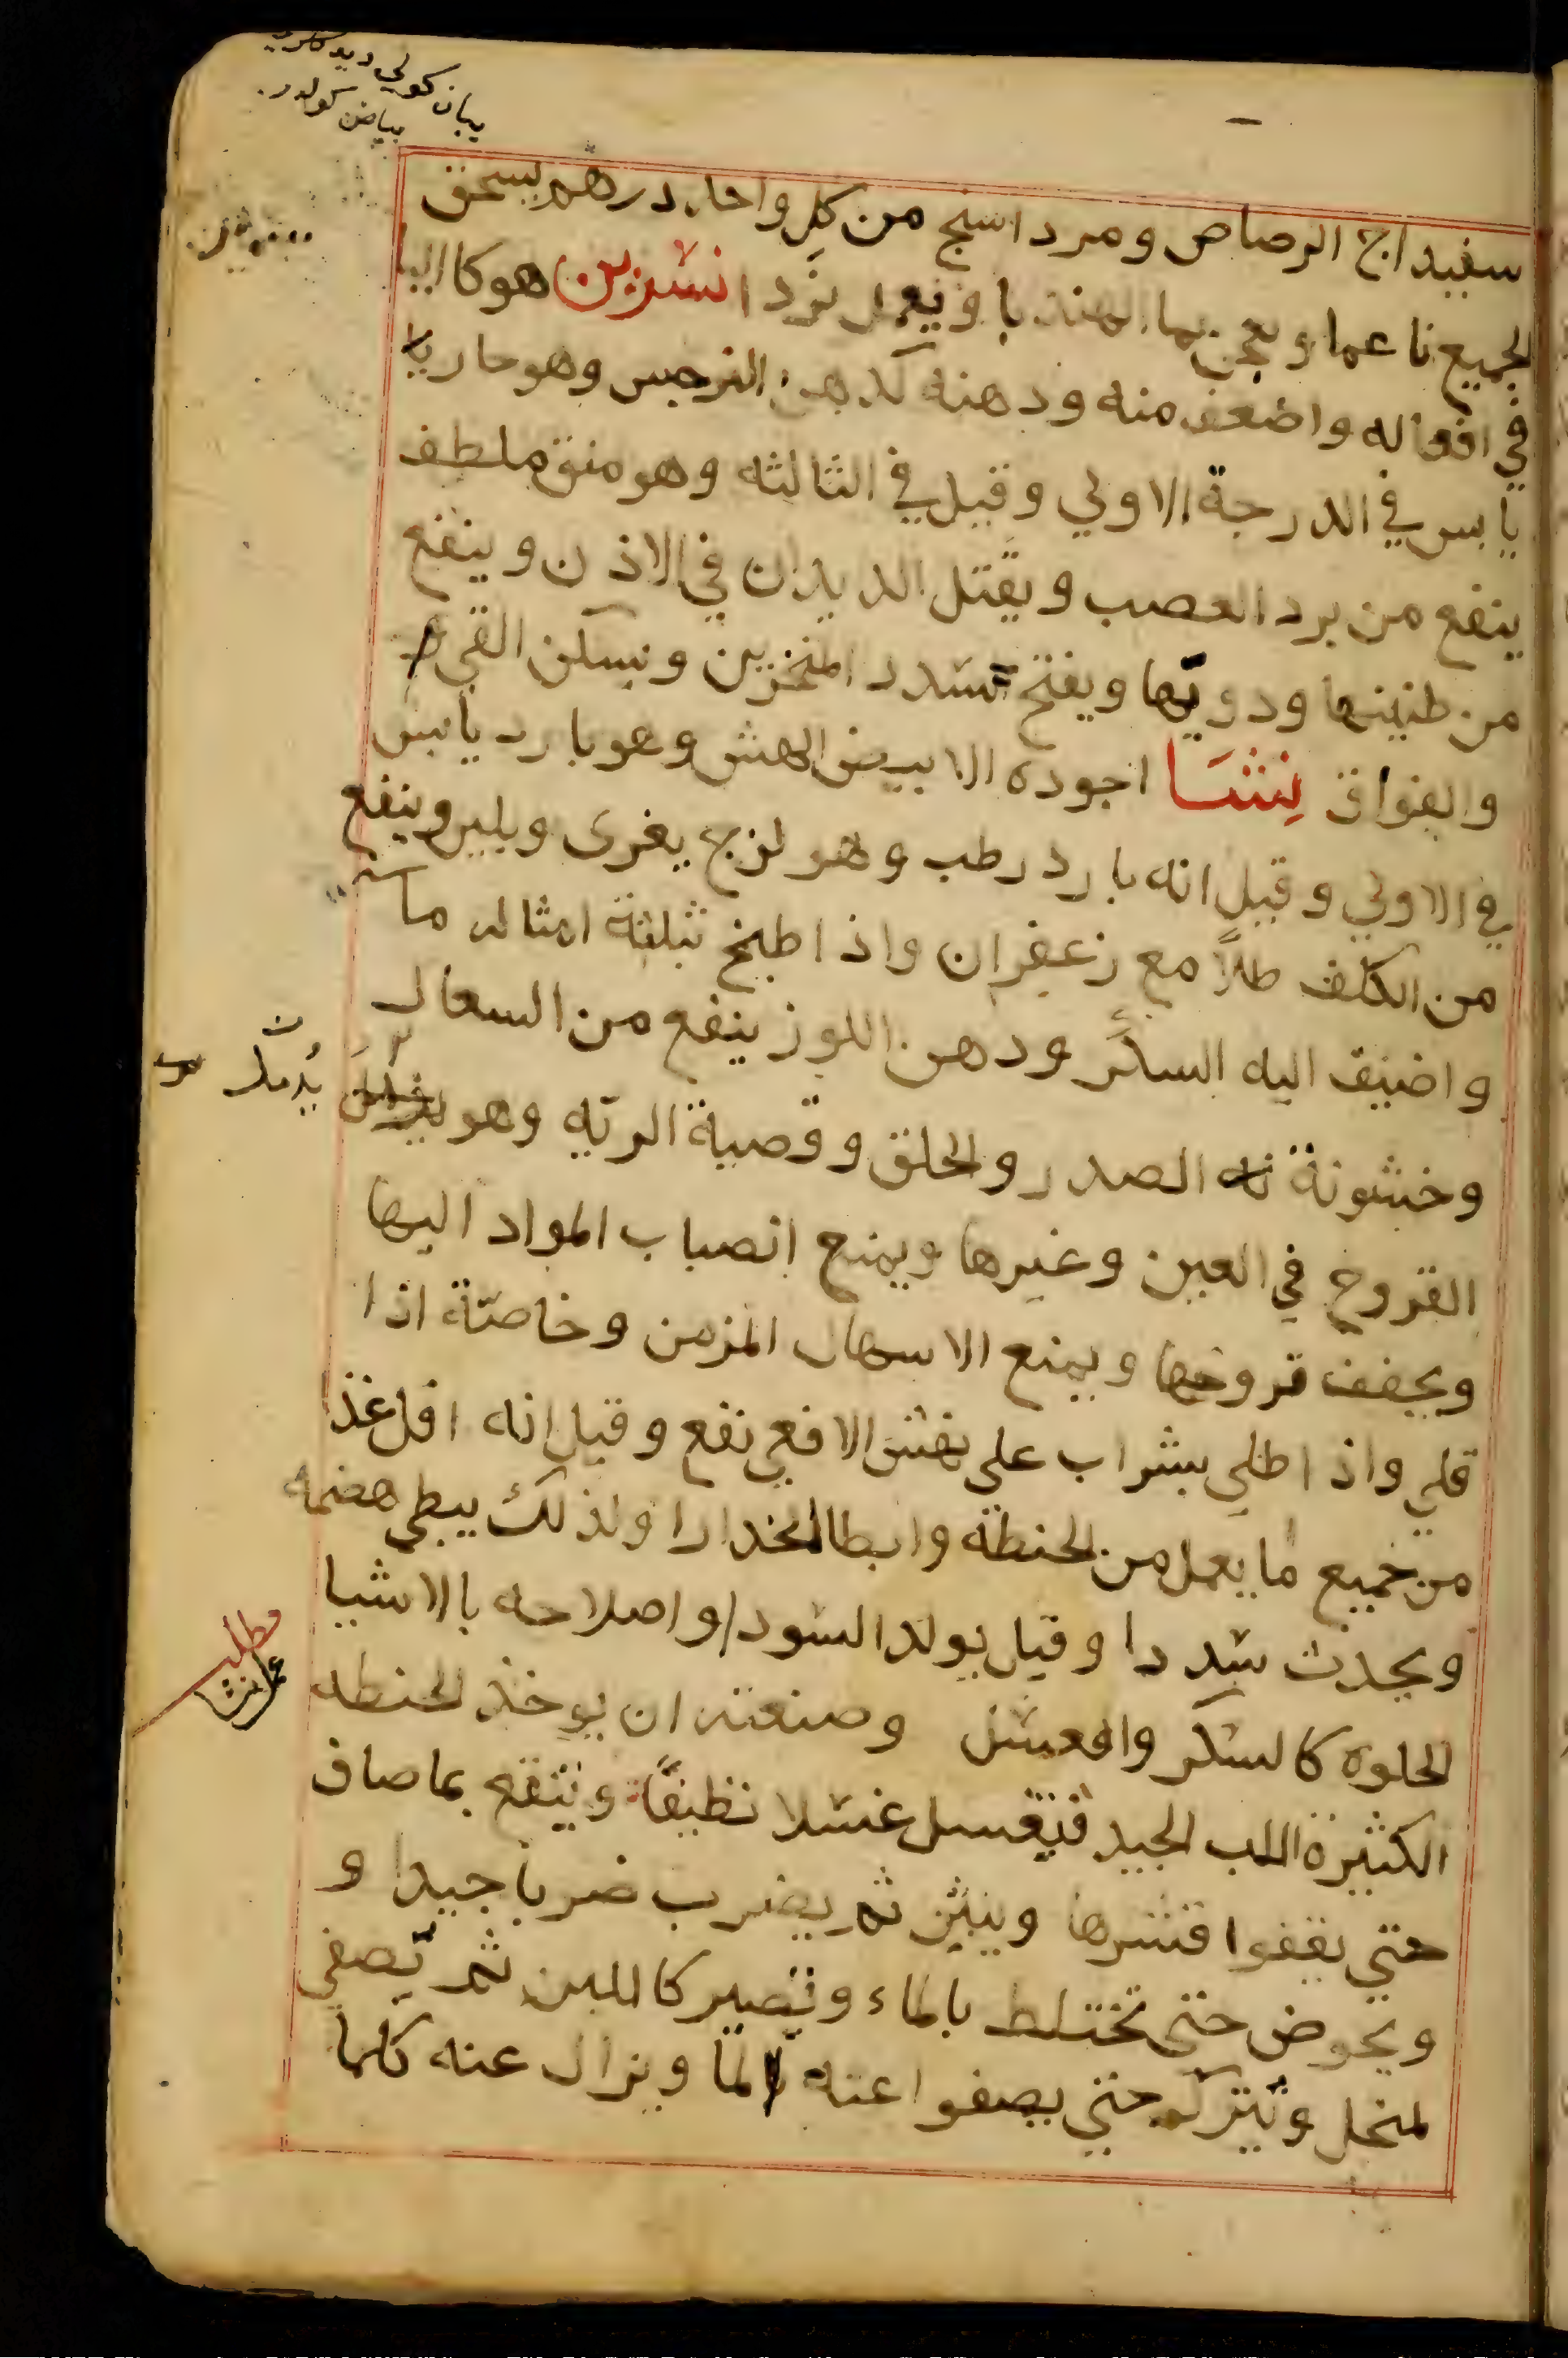 يبان كولي ديدكلري
بياض كولدر
سفيداج الرصاص ومرداسنج من كل واحد درهم يسحق
الجميع ناعما ويعجن بما الهندبا ويعمل نرد انسرين هو كاليا
في افعاله واضعف منه ودهنه كدهن النرجس وهو حار يا
يابس في الدرجة الاولي وقيل في الثالثه وهو منق ملطف
ينفع من برد العصب ويقتل الديدان في الاذن وينفع
من طنينها ودويّها ويفتح سدد المنخرين ويسكن القيء
والفواق نِشَا اجوده الابيض الهش وهو بارد يابس
في الاولي وقيل انه بارد رطب وهو لزج يغرى ويلين وينفع
من الكلف طلاً مع زعفران واذا طبخ بثلثة امثاله ما
واضيف اليه السكّر ودهن اللوز ينفع من السعال
وخشونة الصدر والحلق وقصبة الريه وهو يدمل
القروح في العين وغيرها ويمنع انصباب المواد اليها
ويجفف قروحها ويمنع الاسهال المزمن وخاصّة اذا
قلي واذا طلي بشراب على نهش الافعي نفع وقيل انه اقل غذا
من جميع ما يعمل من الحنطة وابطا انحدارا ولذلك يبطي هضمه
ويحدث سددا وقيل يولد السودا واصلاحه بالاشيا
الحلوه كالسكر والعسل وصنعته ان يوخذ الحنطه
مطلب
عمل نشا
الكثيرة اللب الجيد فتغسل غسلا نظيفاً وينقع بما صاف
حتي يقفوا قشرها ويبين ثم يضرب ضربا جيدا و
ويحوض حتى تختلط بالماء وتصير كاللبن ثم تصفي
لمنخل وتترك حتي يصفوا عنه المّا ويزال عنه كلما